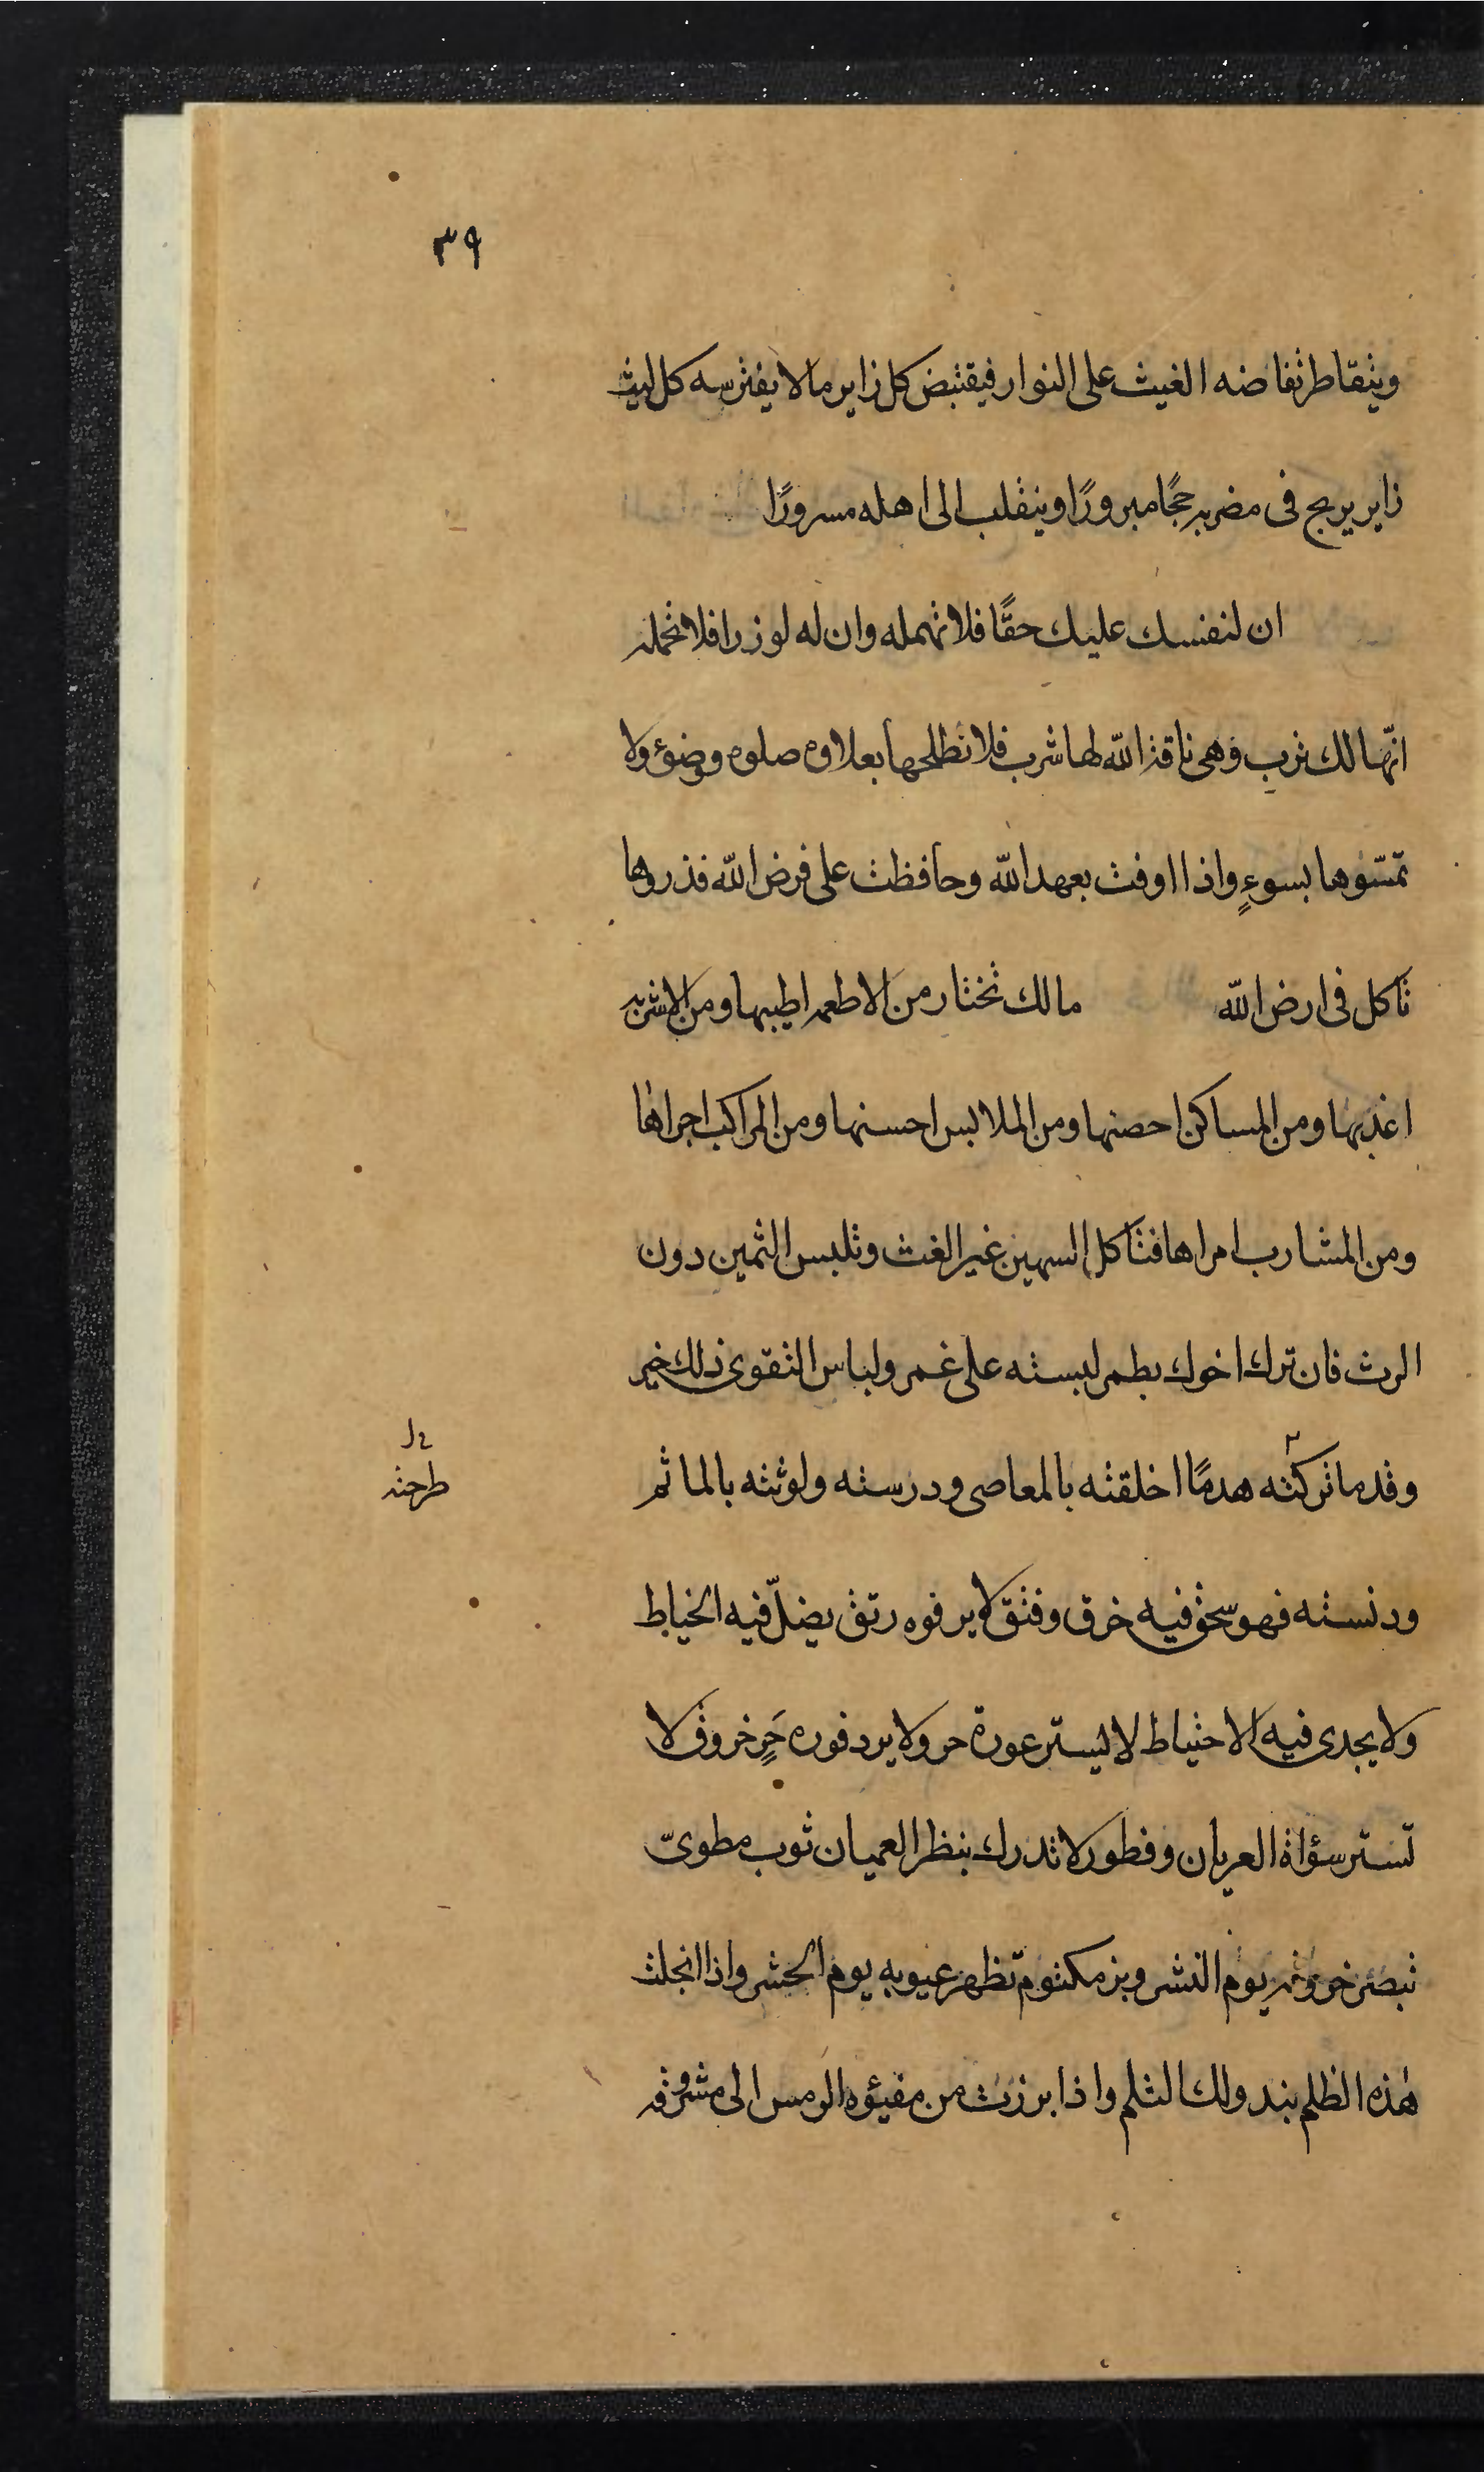 ٣٩
ويتقاطر تفاضه الغيث على النوار فيقتبض كل زاير ما لا يفترسه كل ليث
زاير يربح فى مضربه حجًا مبرورًا وينقلب الى اهله مسرورًا
ان لنفسك عليك حقًّا فلا تهمله وان له لوزرا فلا تحمله
انّها لك ترب وهى ناقة الله لها شرب فلا تطلحها بعلاوه صلوه وضوء ولا
تمسّوها بسوءٍ واذا اوفت بعهد الله وحافظت على فرض الله فذروها
تاكل فى ارض الله مالك تختار من الاطعمه اطيبها ومن الاشربه
اعذبها ومن المساكن احصنها ومن الملابس احسنها ومن المراكب اجراها
ومن المشارب امراها فتاكل السمين غير الغث وتلبس الثمين دون
الرث فان ترك اخوك بطمر لبسته على غمر ولباس التقوى ذلك خير
وقد ما تركته هدمًا اخلقته بالمعاصى ودرسته ولوثته بالماثم
طرحته
ودنسته فهو سحق فيه خرق وفتق لا يرفوه رتق يضلّ فيه الخياط
ولا يجدى فيه الاحتياط لا ليستر عورة حر ولا يرد فوره حَرٍ خروق لا
تستر سؤاة العريان وفطور لا تدرك بنظر العميان ثوب مطوىّ
تبصر خروقه يوم النشر وبز مكتوم تظهر عيوبه يوم الحشر واذا انجلت
هذه الظلم بند ولك الثلم واذا برزت من مفيؤه الرمس الى مشرقه